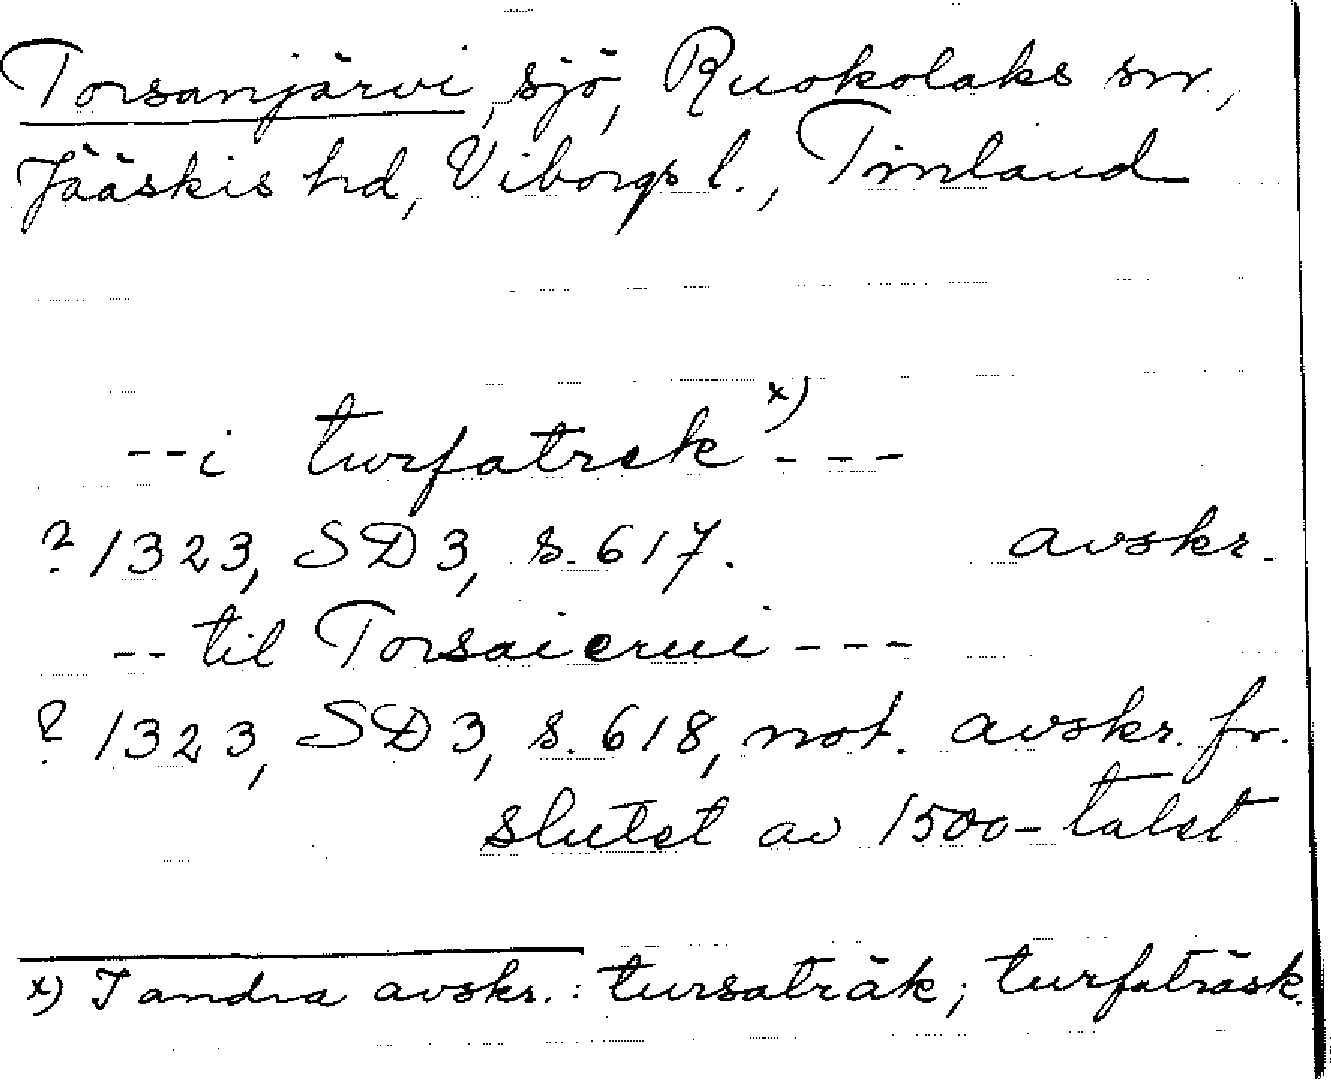 Torsanjärvi, sjö, Ruokolaks sn.,
Jääskis hd, Viborgs l., Finland
--i turfatrek x) ---
? 1323, SD 3, s. 617. avskr.
-- til Torsaierui ---
? 1323, SD 3, s. 618, not. avskr. fr.
slutet av 1500-talet
x) I andra avskr.: tursaträk; turfaträsk.